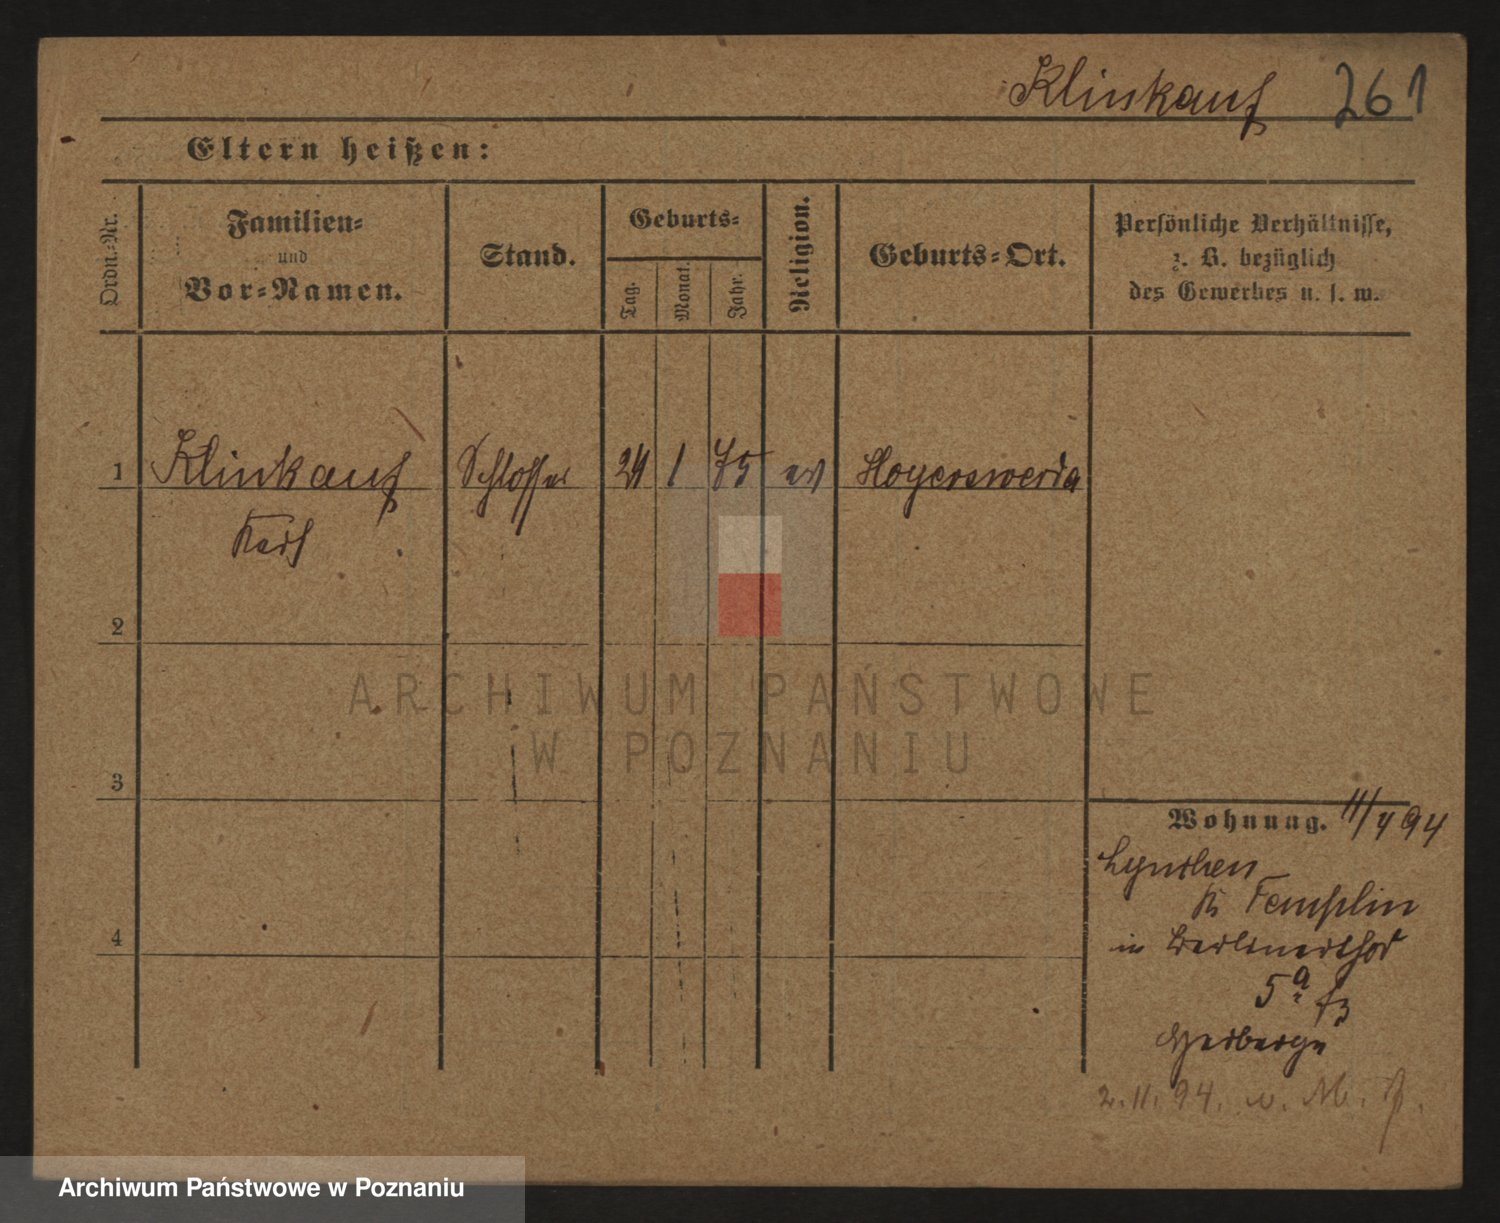 Klinkauf 261
Eltern heißen:
Ordn.-Nr.
Familien-
und
Vor-Namen.
Stand.
Geburts-
Tag.
Monat.
Jahr.
Religion.
Geburts-Ort.
Persönliche Verhältnisse,
z. B. bezüglich
des Gewerbes u. s. w.
1 Klinkauf Schlosser 24 1 75 ev Hoyerswerda
Karl
2
3
4
Wohnung. 94
Lynchen
K Templin
in Berlinerthor
5a
Herberge
2. 11. 94. v. M.
ARCHIWUM PAŃSTWOWE
W POZNANIU
Archiwum Państwowe w Poznaniu